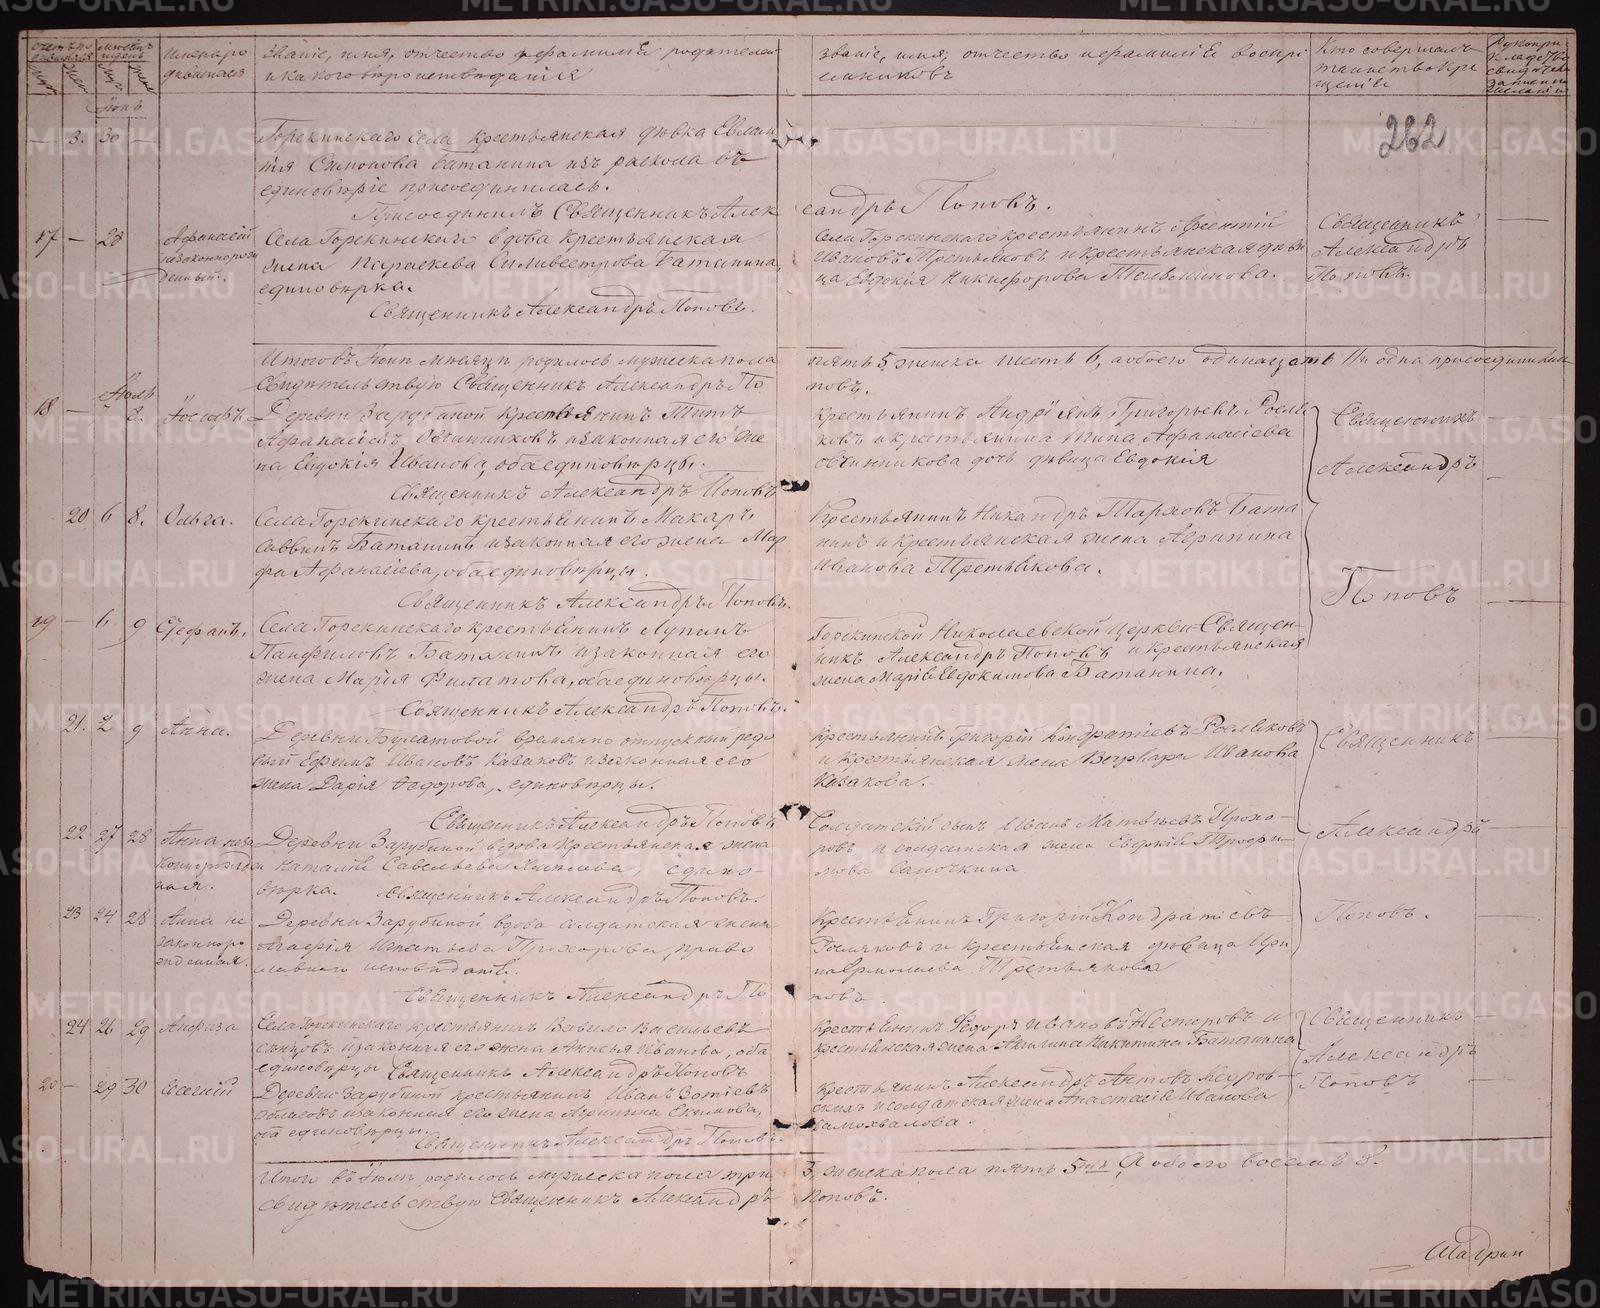 Имена родившихся
Званіе, имя, отчество и фамилія родителей
и какого вѣроисповѣданія
Званіе, имя, отчество и фамиліе воспрі
емниковъ
Кто совершалъ
таинство кре
щенія
Рукопри
кладство
свидѣтелей
записи по
желанію
262
Іюнь
3. 30
Горскинскаго села крестьянская дѣвка Евлам
пія Симонова Батанина изъ раскола въ
единовѣріе присоединилась.
Присоединилъ Священникъ Александръ Поповъ.
17 — 28
Афанасій
незаконнорож
денный.
Села Горскинскаго вдова крестьянская
жена Параскева Силивестрова Батанина,
единовѣрка.
Священникъ Александръ Поповъ.
Села Горскинскаго крестьянинъ
Ивановъ Третьяковъ и крестьянская дѣви
ца Евдокія Никифорова
Священникъ
Александръ
Поповъ.
Итого въ Іюнѣ мѣсяцѣ родилось мужеска пола пять 5 женска шесть 6, а обоего одинадцать 11 и одна присоединилась
Свидѣтельствую Священникъ Александръ Поповъ.
Іюль
18 — 8.
Іосифъ
Деревни Зарубиной крестьянинъ Титъ
Афанасіевъ Овчинниковъ и законная его же
на Евдокія Иванова, оба единовѣрцы.
Священникъ Александръ Поповъ
Крестьянинъ Андріянъ Григорьевъ Росля
ковъ и крестьянина Тита Афанасіева
Овчинникова дочь дѣвица Евдокія
Священникъ
Александръ
Поповъ
20 6 8.
Ольга.
Села Горскинскаго крестьянинъ Макаръ
Саввинъ Батанинъ и законная его жена Мар
фа Афанасіева, оба единовѣрцы.
Священникъ Александръ Поповъ.
Крестьянинъ Никандръ Тарховъ Бата
нинъ и крестьянская жена Агрипина
Иванова Третьякова.
19 — 6. 9
Стефанъ.
Села Горскинскаго крестьянинъ Лупанъ
Панфиловъ Батанинъ и законная его
жена Марія Филатова, оба единовѣрцы.
Священникъ Александръ Поповъ.
Горскинской Николаевской церкви Священ-
никъ Александръ Поповъ и крестьянская
жена Марія Евдокимова Батанина.
21. 9
Анна.
Деревни Булатовой временно отпускный рядо
вый Ефимъ Ивановъ Казаковъ и законная его
жена Дарія Федорова, единовѣрцы.
Священникъ Александръ Поповъ,
Крестьянинъ Григорій Кондратіевъ Росляковъ
и крестьянская жена Варвара Иванова
Казакова.
Священникъ
Александръ
Поповъ.
22 27 28
Анна неза
коннорожден
ная.
Деревни Зарубиной вдова крестьянская жена
Наталія Савельева едино-
вѣрка. Священникъ Александръ Поповъ.
Солдатскій сынъ Иванъ Матвѣевъ Прохо-
ровъ и солдатская жена Евдокія Трофи-
мова
23 24 28
Анна не
законноро
жденная.
Деревни Зарубиной вдова солдатская жена
Игнатьева Прохорова, право
славнаго исповѣданія.
Священникъ Александръ Поповъ.
Крестьянинъ Григорій Кондратіевъ
Росляковъ и крестьянская дѣвица Ири
на Ермолаева Третьякова
24 26 29
Анфиза
Села Горскинскаго крестьянинъ Вавило Васильевъ
и законная его жена Анисья Иванова, оба
единовѣрцы Священникъ Александръ Поповъ
Крестьянинъ Федоръ Ивановъ Нестеровъ и
крестьянская жена Акилина Никитина Батанина
Священникъ
Александръ
Поповъ
20 — 29 30
Евгеній
Деревни Зарубиной крестьянинъ Иванъ
и законная его жена Агрипина Екимова,
оба единовѣрцы.
Священникъ Александръ Поповъ.
Крестьянинъ Александръ
и солдатская жена Анастасія Иванова
Самохвалова.
Итого въ Іюлѣ родилось мужеска пола три 3, женска пола пять 5ть, а обоего восемь 8.
Свидѣтельствую Священникъ Александръ Поповъ.
Шадрин
METRIKI.GASO-URAL.RU